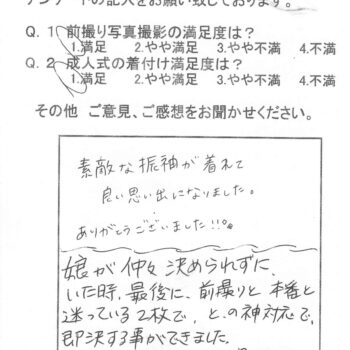 アンケートの記入をお願い致しております。
Q. 1 前撮り写真撮影の満足度は？
1.満足 2.やや満足 3.やや不満 4.不満
Q. 2 成人式の着付け満足度は？
1.満足 2.やや満足 3.やや不満 4.不満
その他 ご意見、ご感想をお聞かせください。
素敵な振袖が着れて
良い思い出になりました。
ありがとうございました!!。
娘が仲々決められずに、
いた時、最後に、前撮りと本番と
迷っている2枚で、との神対応で、
即決する事ができました。